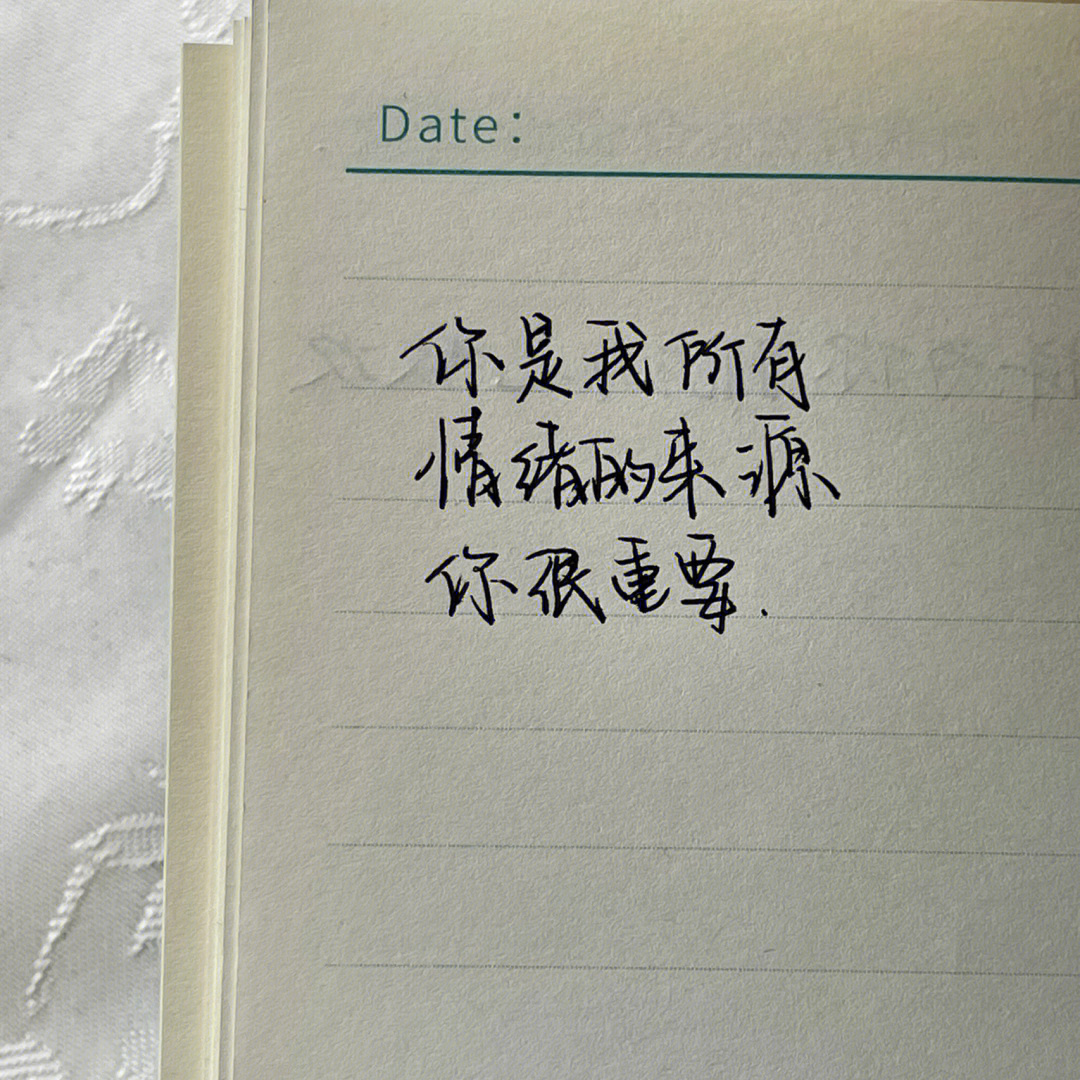 Date:
你是我所有
情绪的来源
你很重要.